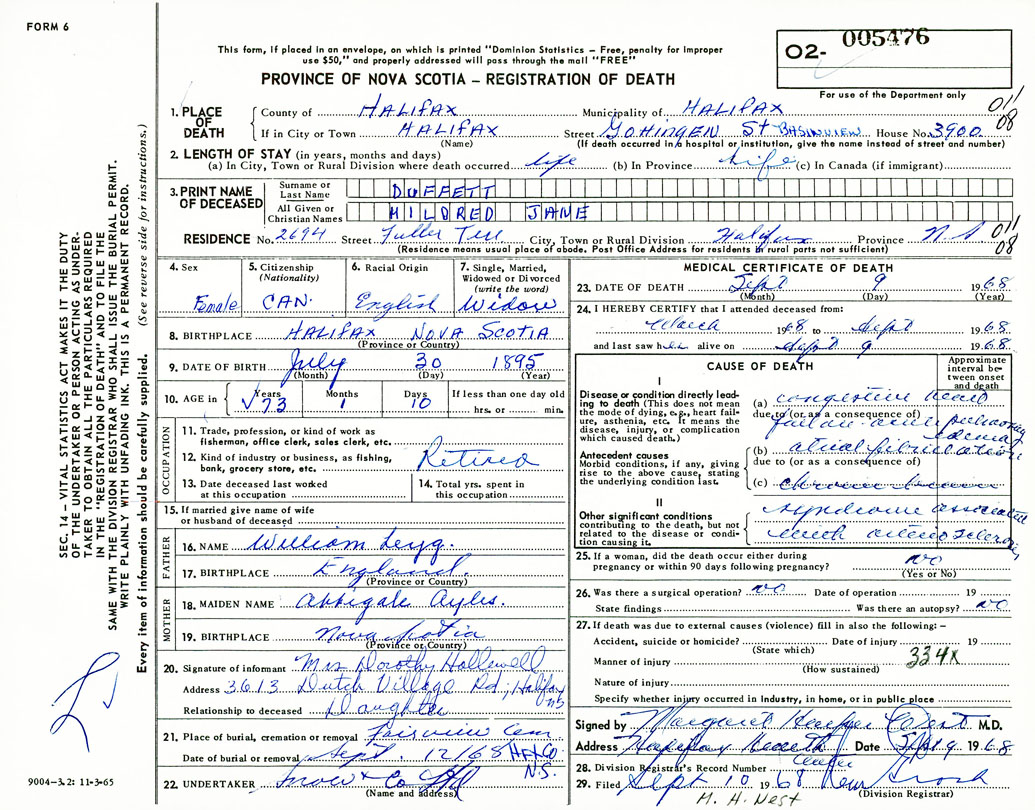 FORM 6
This form, if placed in an envelope, on which is printed "Dominion Statistics – Free, penalty for improper
use $50," and properly addressed will pass through the mail "FREE"
PROVINCE OF NOVA SCOTIA – REGISTRATION OF DEATH
O2- 005476
For use of the Department only
011
08
1. PLACE OF DEATH County of HALIFAX Municipality of HALIFAX
If in City or Town HALIFAX Street GOHINGEN St BASINVIEW House No. 3900
(Name) (If death occurred in a hospital or institution, give the name instead of street and number)
2. LENGTH OF STAY (in years, months and days)
(a) In City, Town or Rural Division where death occurred life (b) In Province Life (c) In Canada (if immigrant)
3. PRINT NAME OF DECEASED
Surname or Last Name DUFFETT
All Given or Christian Names MILDRED JANE
RESIDENCE No. 2694 Street Fuller Terr City, Town or Rural Division Halifax Province N.S
011
08
(Residence means usual place of abode. Post Office Address for residents of rural parts not sufficient)
4. Sex Female
5. Citizenship (Nationality) CAN.
6. Racial Origin English
7. Single, Married, Widowed or Divorced (write the word) Widow
8. BIRTHPLACE HALIFAX NOVA SCOTIA
(Province or Country)
9. DATE OF BIRTH July 30 1895
(Month) (Day) (Year)
10. AGE in Years 73 Months 1 Days 10 If less than one day old
hrs. or min.
OCCUPATION
11. Trade, profession, or kind of work as
fisherman, office clerk, sales clerk, etc.
12. Kind of industry or business, as fishing,
bank, grocery store, etc. Retired
13. Date deceased last worked
at this occupation
14. Total yrs. spent in
this occupation
15. If married give name of wife
or husband of deceased
FATHER
16. NAME William
17. BIRTHPLACE England.
(Province or Country)
MOTHER
18. MAIDEN NAME Abbigale Ayles.
19. BIRTHPLACE Nova Scotia
(Province or Country)
20. Signature of informant Mrs Dorothy Hallewell
Address 3613 Dutch Village Rd; Halifax NS
Relationship to deceased Daughter
21. Place of burial, cremation or removal Fairview Cem
Date of burial or removal Sept. 12/68 Hfx Co. N.S.
22. UNDERTAKER Snow & Co
(Name and address)
MEDICAL CERTIFICATE OF DEATH
23. DATE OF DEATH Sept 9 1968
(Month) (Day) (Year)
24. I HEREBY CERTIFY that I attended deceased from:
March 1968 to Sept 1968
and last saw her alive on Sept 9 1968.
CAUSE OF DEATH
Approximate interval between onset and death
I
Disease or condition directly leading to death (This does not mean the mode of dying, e.g., heart failure, asthenia, etc. It means the disease, injury, or complication which caused death.)
(a) congestive heart
due to (or as a consequence of)
failure - acute pulmonary
edema
Antecedent causes
Morbid conditions, if any, giving rise to the above cause, stating the underlying condition last.
(b) atrial fibrillation
due to (or as a consequence of)
(c) chronic
II
Other significant conditions
contributing to the death, but not related to the disease or condition causing it.
syndrome associated
with arteriosclerosis
25. If a woman, did the death occur either during
pregnancy or within 90 days following pregnancy? no
(Yes or No)
26. Was there a surgical operation? no Date of operation 19
State findings Was there an autopsy? no
27. If death was due to external causes (violence) fill in also the following: –
Accident, suicide or homicide? Date of injury 19
(State which)
Manner of injury 334X
(How sustained)
Nature of injury
Specify whether injury occurred in Industry, in home, or in public place
Signed by Margaret West M.D.
Address Halifax Health Center Date Sept 9 1968
28. Division Registrar's Record Number
29. Filed Sept 10 1968
(Division Registrar)
M. H. West
SEC. 14 – VITAL STATISTICS ACT MAKES IT THE DUTY
OF THE UNDERTAKER OR PERSON ACTING AS UNDER-
TAKER TO OBTAIN ALL THE PARTICULARS REQUIRED
IN THE "REGISTRATION OF DEATH" AND TO FILE THE
SAME WITH THE DIVISION REGISTRAR WHO SHALL ISSUE THE BURIAL PERMIT.
WRITE PLAINLY WITH UNFADING INK. THIS IS A PERMANENT RECORD.
Every item of information should be carefully supplied. (See reverse side for instructions.)
9004-3.2: 11-3-65